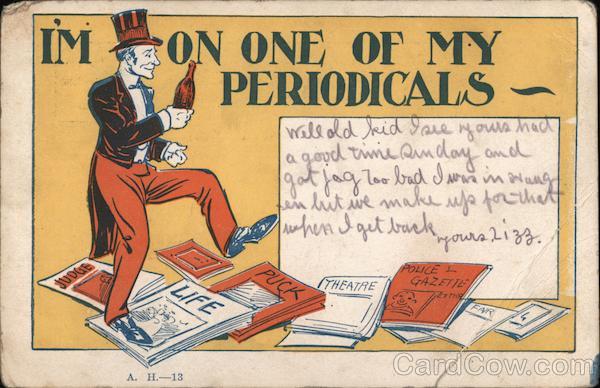 I'M ON ONE OF MY
PERIODICALS ~
Well old kid I see yours had
a good time Sunday and
got jag too bad I was in
en but we make up for that
when I get back
yours Lizz.
JUDGE
LIFE
PUCK
THEATRE
POLICE
GAZETTE
FAIR
A. H.—13
CardCow.com